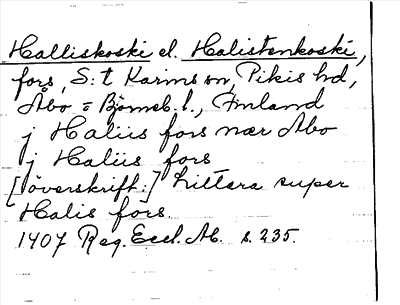 Halliskoski el. Halistenkoski,
fors, S:t Karins sn, Pikis hd,
Åbo = Björneb. l., Finland
j Haliis fors nær Abo
j Haliis fors
[överskrift:] Littera super
Halis fors.
1407 Reg. Eccl. Ab. s. 235.